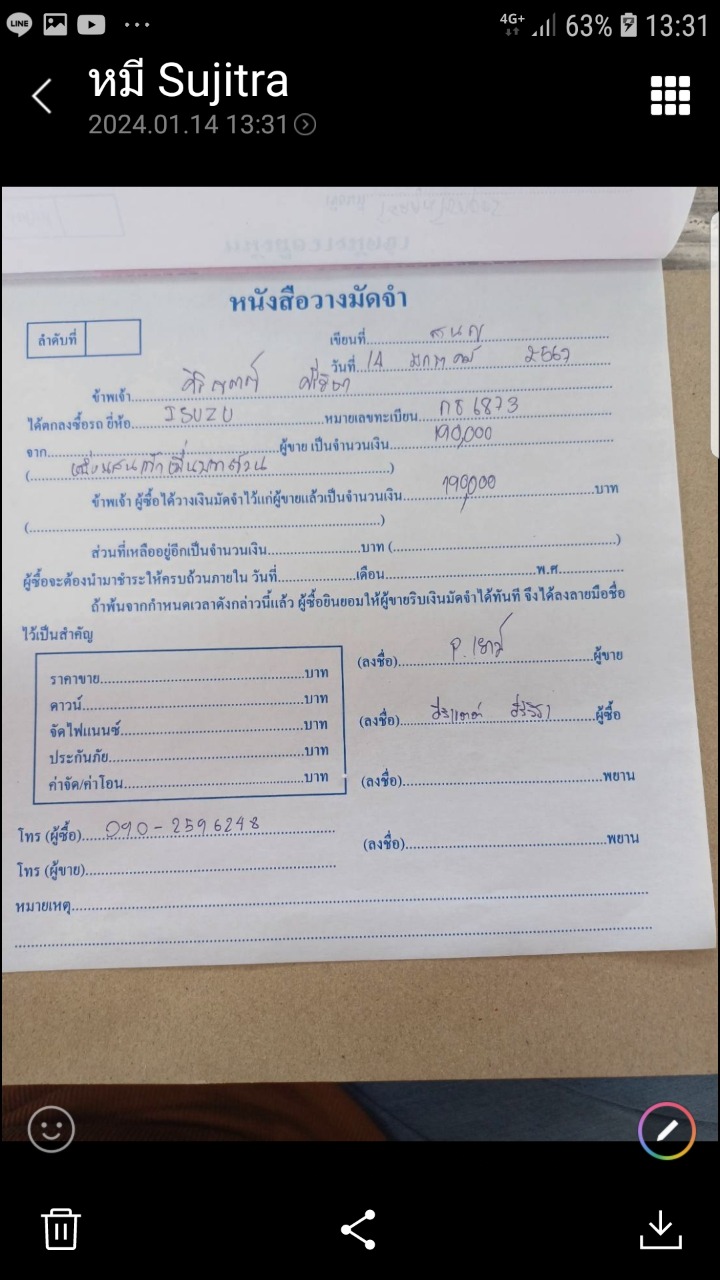 LINE
4G+ 63% 13:31
หมี Sujitra
2024.01.14 13:31
หนังสือวางมัดจำ
ลำดับที่
เขียนที่
วันที่ 14 มกราคม 2567
ข้าพเจ้า
ได้ตกลงซื้อรถ ยี่ห้อ ISUZU หมายเลขทะเบียน 6873
จาก ผู้ขาย เป็นจำนวนเงิน 190,000
(หนึ่งแสนเก้าหมื่นบาทถ้วน)
ข้าพเจ้า ผู้ซื้อได้วางเงินมัดจำไว้แก่ผู้ขายแล้วเป็นจำนวนเงิน 190,000 บาท
( )
ส่วนที่เหลืออยู่อีกเป็นจำนวนเงิน บาท ( )
ผู้ซื้อจะต้องนำมาชำระให้ครบถ้วนภายใน วันที่ เดือน พ.ศ.
ถ้าพ้นจากกำหนดเวลาดังกล่าวนี้แล้ว ผู้ซื้อยินยอมให้ผู้ขายริบเงินมัดจำได้ทันที จึงได้ลงลายมือชื่อ
ไว้เป็นสำคัญ
ราคาขาย บาท
ดาวน์ บาท
จัดไฟแนนซ์ บาท
ประกันภัย บาท
ค่าจัด/ค่าโอน บาท
(ลงชื่อ) ผู้ขาย
(ลงชื่อ) ผู้ซื้อ
(ลงชื่อ) พยาน
(ลงชื่อ) พยาน
โทร (ผู้ซื้อ) 090-2596248
โทร (ผู้ขาย)
หมายเหตุ